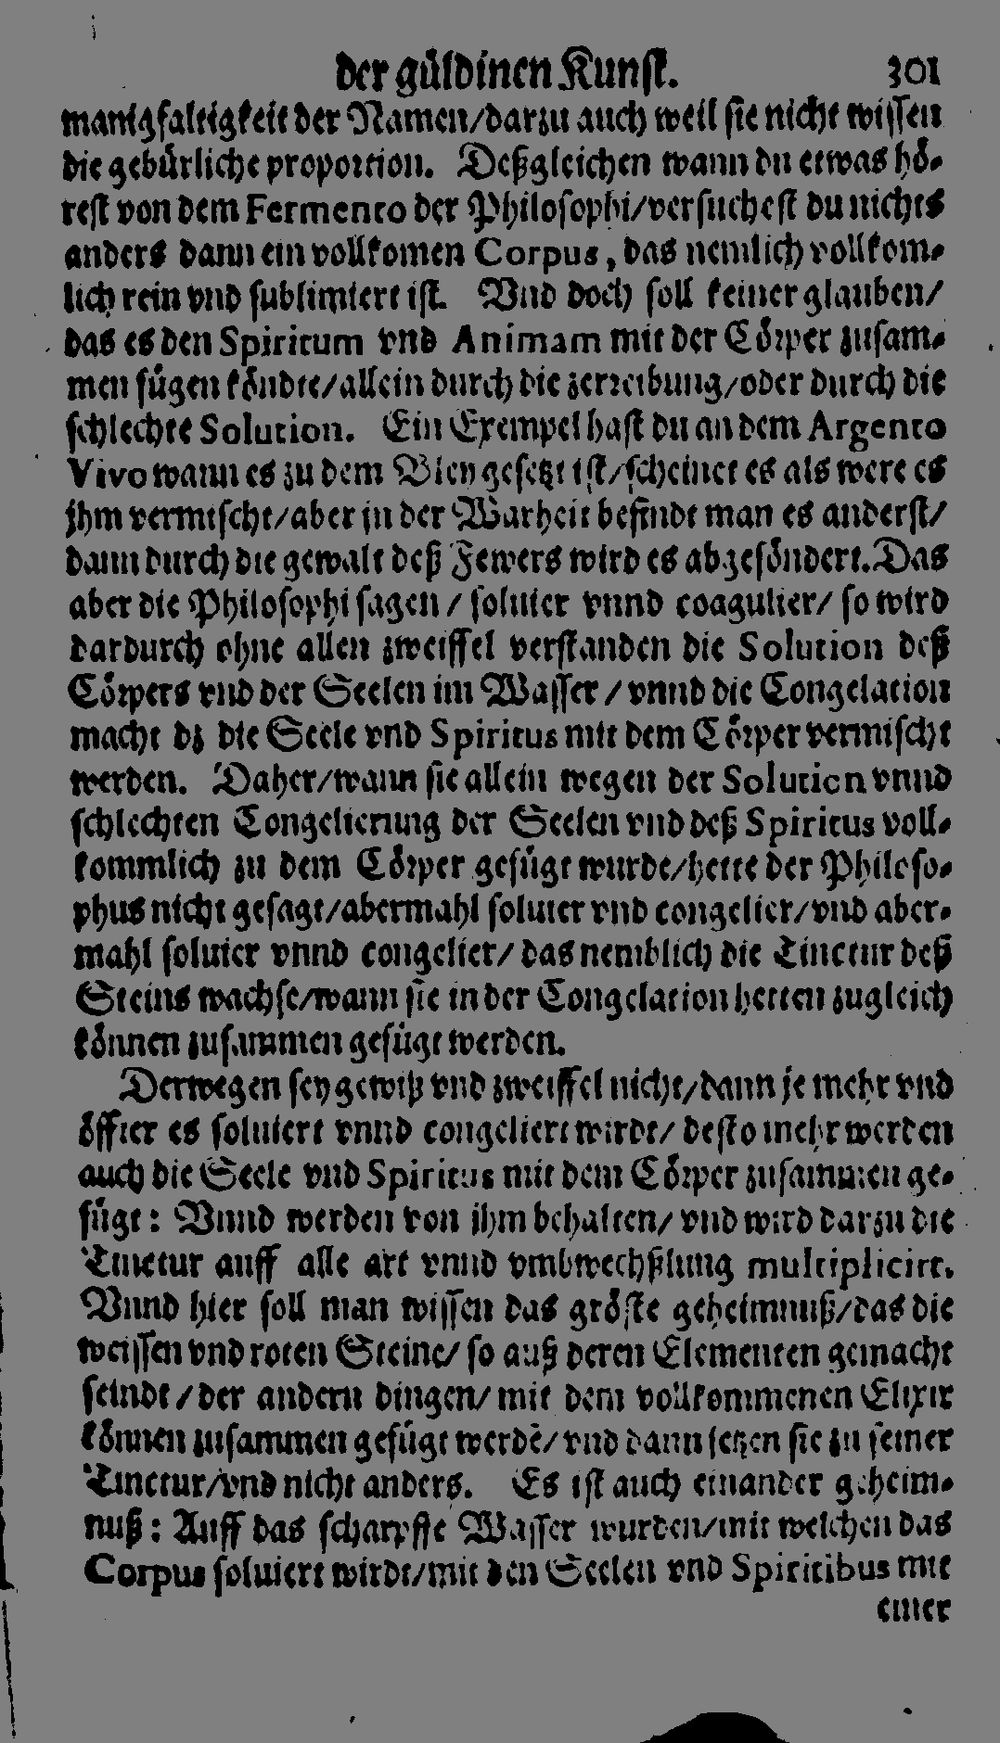 der güldinen Kunst. 301
manigfaltigkeit der Namen/darzu auch weil sie nicht wissen
die gebürliche proportion. Deßgleichen wann du etwas hö-
rest von dem Fermento der Philosophi/versuchest du nichts
anders dann ein vollkomen Corpus, das nemlich vollkom-
lich rein vnd sublimiert ist. Vnd doch soll keiner glauben/
das es den Spiritum vnd Animam mit der Cörper zusam-
men fügen köndte/allein durch die zerreibung/oder durch die
schlechte Solution. Ein Exempel hast du an dem Argento
Vivo wann es zu dem Bley gesetzt ist/scheinet es als were es
jhm vermischt/aber in der Warheit befindt man es anderst/
dann durch die gewalt deß Fewers wird es abgesöndert. Das
aber die Philosophi sagen/ soluier vnnd coagulier/ so wird
dardurch ohne allen zweiffel verstanden die Solution deß
Cörpers vnd der Seelen im Wasser/ vnnd die Congelation
macht dz die Seele vnd Spiritus mit dem Cörper vermischt
werden. Daher/wann sie allein wegen der Solution vnnd
schlechten Congelierung der Seelen vnd deß Spiritus voll-
kommlich zu dem Cörper gefügt wurde/hette der Philoso-
phus nicht gesagt/abermahl soluier vnd congelier/vnd aber-
mahl soluier vnnd congelier/ das nemblich die Tinctur deß
Steins wachse/wann sie in der Congelation hetten zugleich
können zusammen gefügt werden.
Derwegen sey gewiß vnd zweiffel nicht/dann je mehr vnd
öffter es soluiert vnnd congeliert wirdt/ desto mehr werden
auch die Seele vnd Spiritus mit dem Cörper zusammen ge-
fügt: Vnnd werden von jhm behalten/ vnd wird darzu die
Tinctur auff alle art vnnd vmbwechßlung multiplicirt.
Vnnd hier soll man wissen das gröste geheimnuß/das die
weissen vnd roten Steine/ so auß deren Elementen gemacht
seindt/der andern dingen/ mit dem vollkommenen Elixir
können zusammen gefügt werdē/ vnd dann setzen sie zu seiner
Tinctur/vnd nicht anders. Es ist auch ein ander geheim-
nuß: Auff das scharpffe Wasser wurden/mit welchen das
Corpus soluiert wirdt/mit den Seelen vnd Spiritibus mit
einer